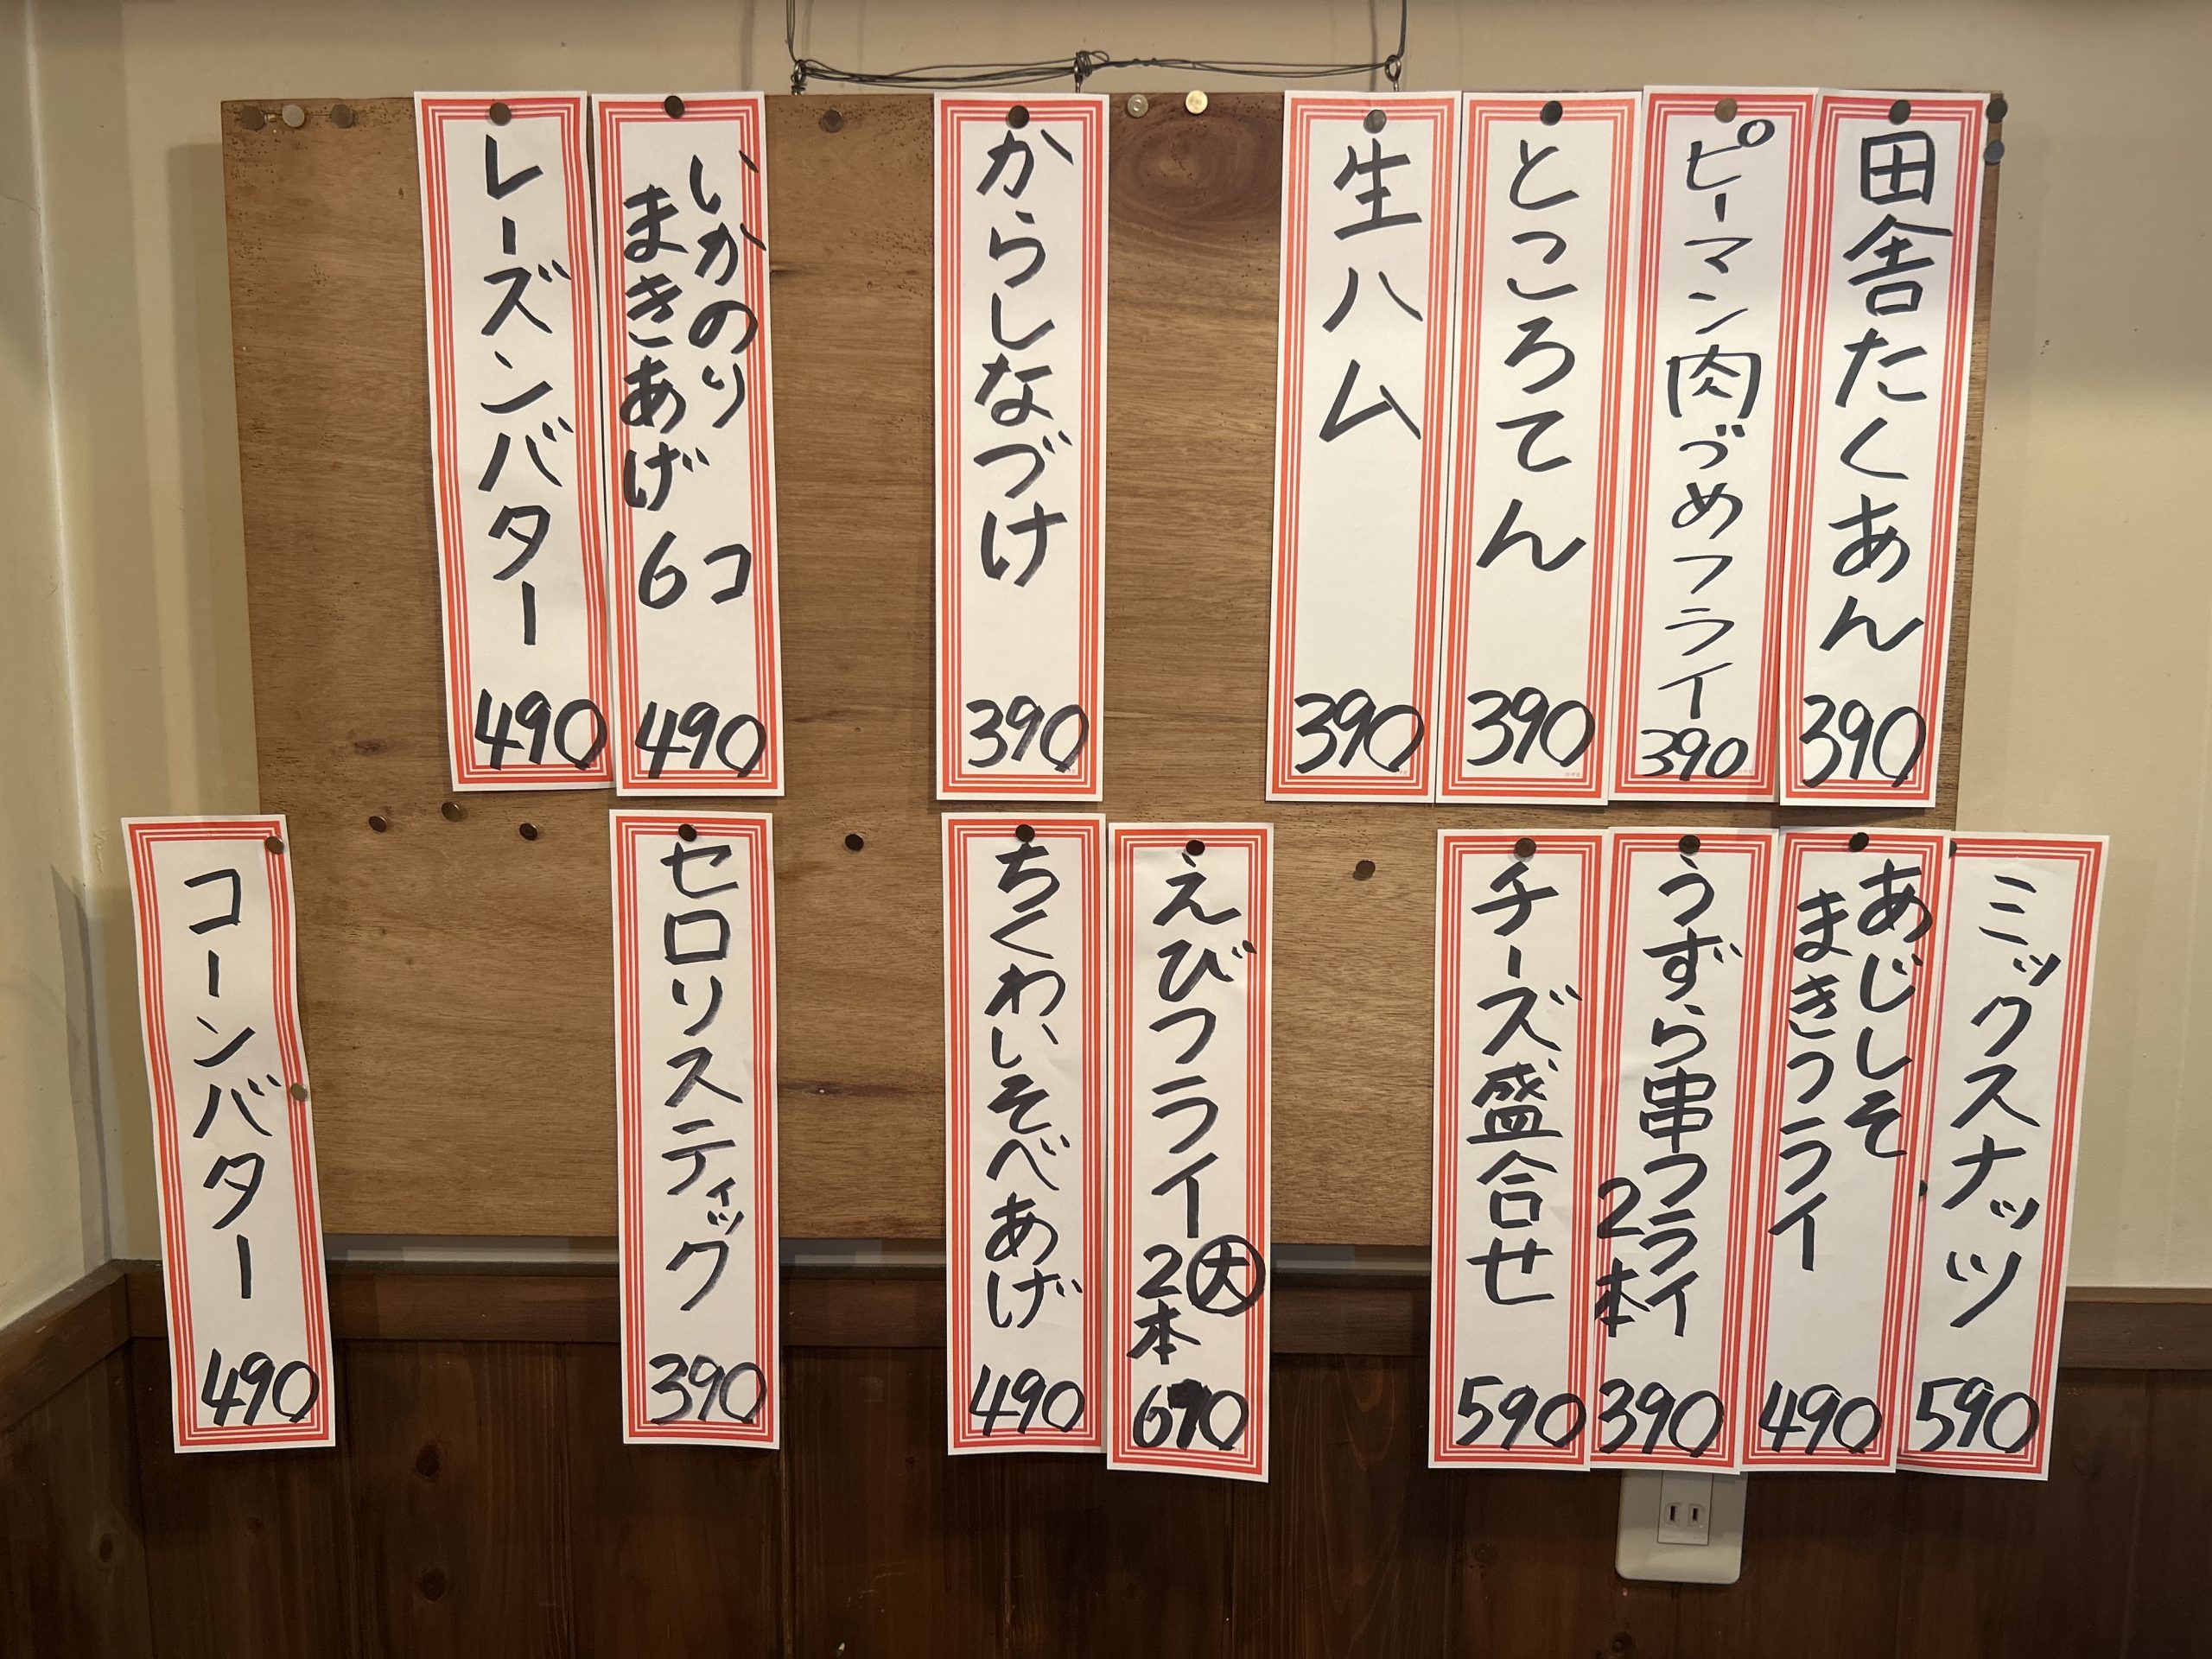 田舎たくあん
390
ピーマン肉づめフライ
390
ところてん
390
生ハム
390
からしなづけ
390
いかのり
まきあげ
6コ
490
レーズンバター
490
ミックスナッツ
590
あじしそ
まきフライ
490
うずら串フライ
2本
390
チーズ盛合せ
590
えびフライ大
2本
670
ちくわいそべあげ
490
セロリスティック
390
コーンバター
490